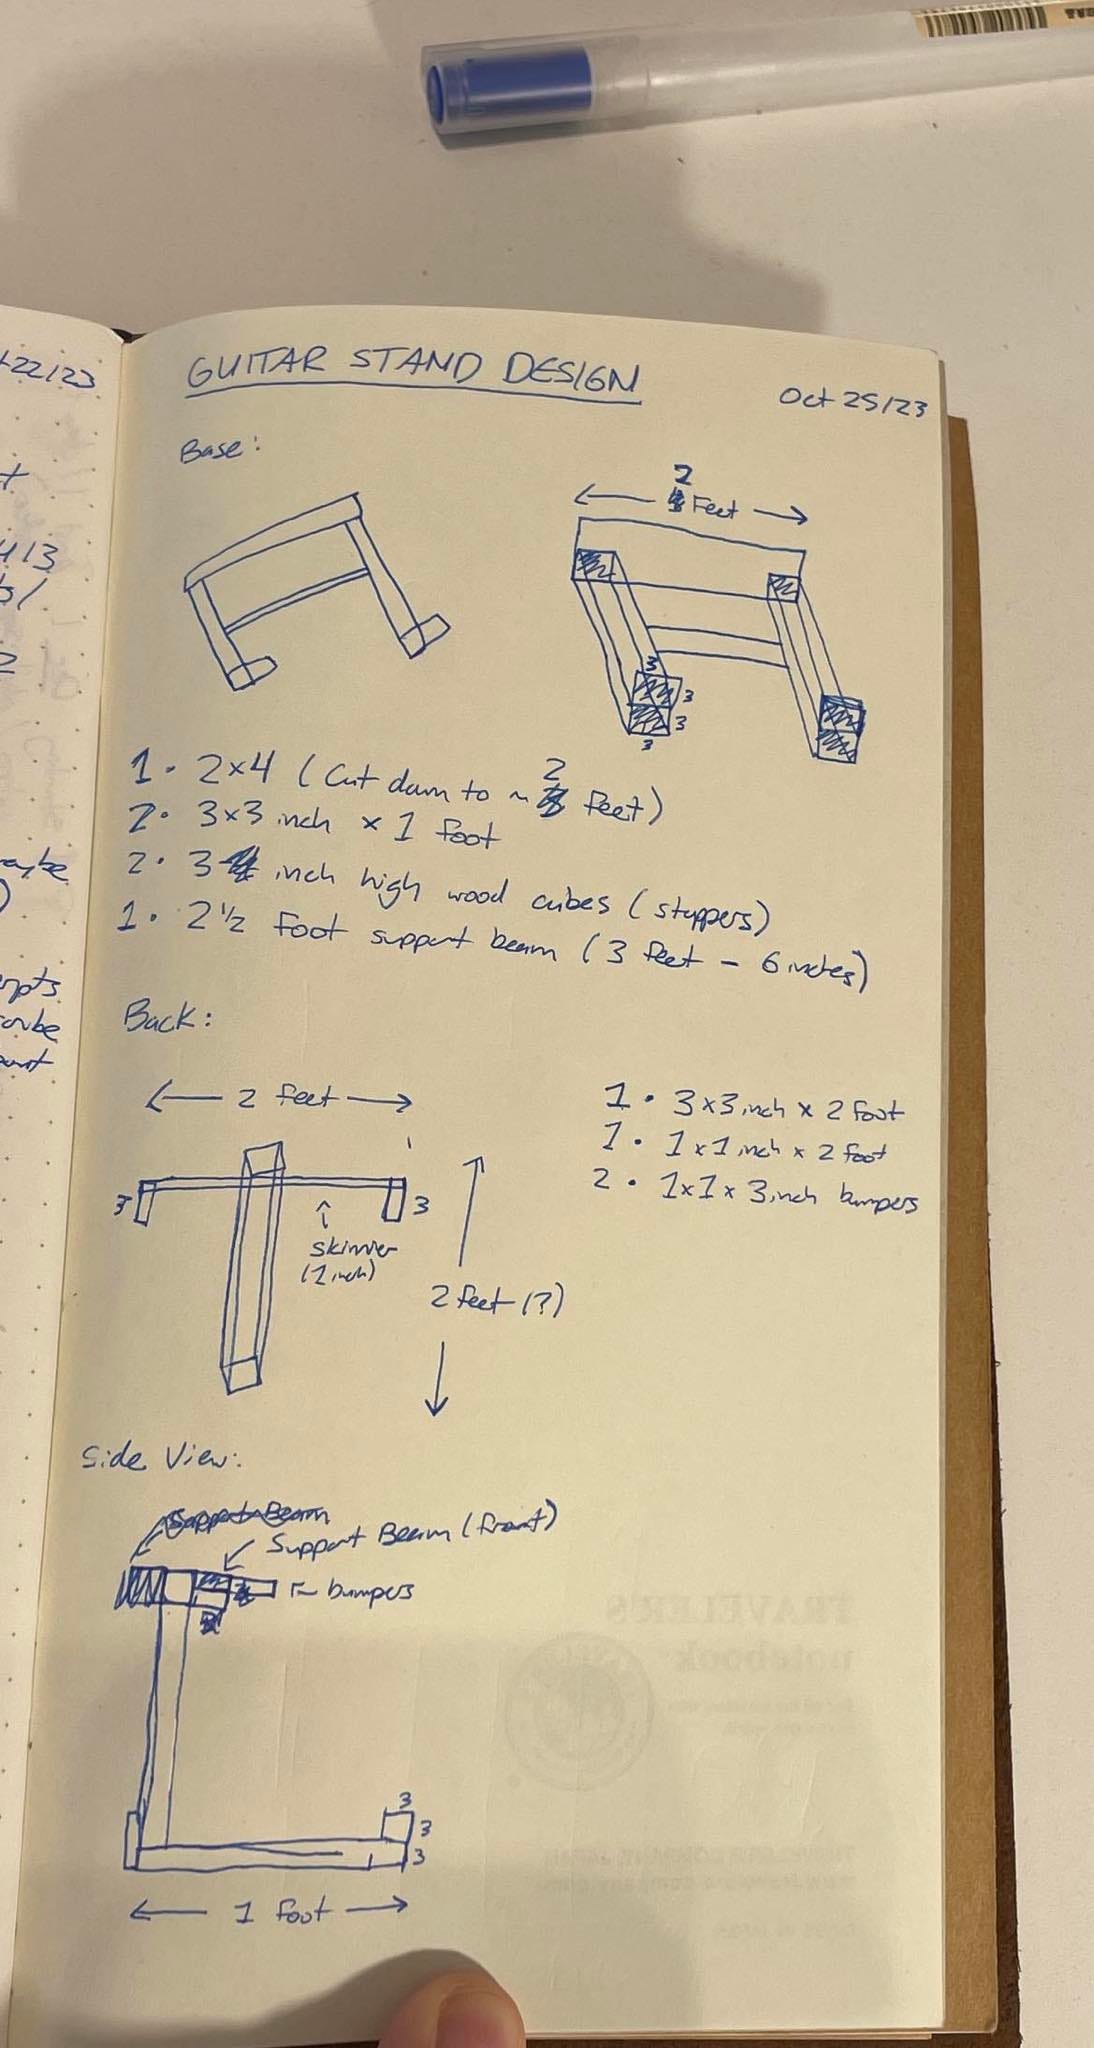 GUITAR STAND DESIGN
Oct 25/23
Base:
2
Feet
3
3
3
3
1 · 2x4 (Cut down to ~ 2 feet)
2 · 3x3 inch x 1 foot
2 · 3 inch high wood cubes (stoppers)
1 · 2 1/2 foot support beam (3 feet - 6 inches)
Back:
2 feet
1 · 3x3 inch x 2 foot
1 · 1x1 inch x 2 foot
2 · 1x1x3 inch bumpers
3
3
skinnier
(1 inch)
2 feet (?)
Side View:
Support Beam
Support Beam (front)
bumpers
3
3
3
1 foot
t 22/23
TRAVELER'S
notebook